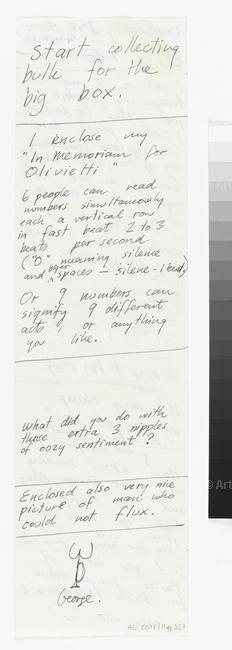 Start collecting
bulk for the
big box.
I enclose my
"In Memoriam for
Olivietti"
6 people can read
numbers simultaneously
each a vertical row
in fast beat 2 to 3
beats per second
("0" meaning silence
and bigger spaces — silence - 1 beat)
Or 9 numbers can
signify 9 different
acts, or anything
you like.
What did you do with
those extra 3 nipples
of oozy sentiment?
Enclosed also very nice
picture of man who
could not flux.
George.
© Art